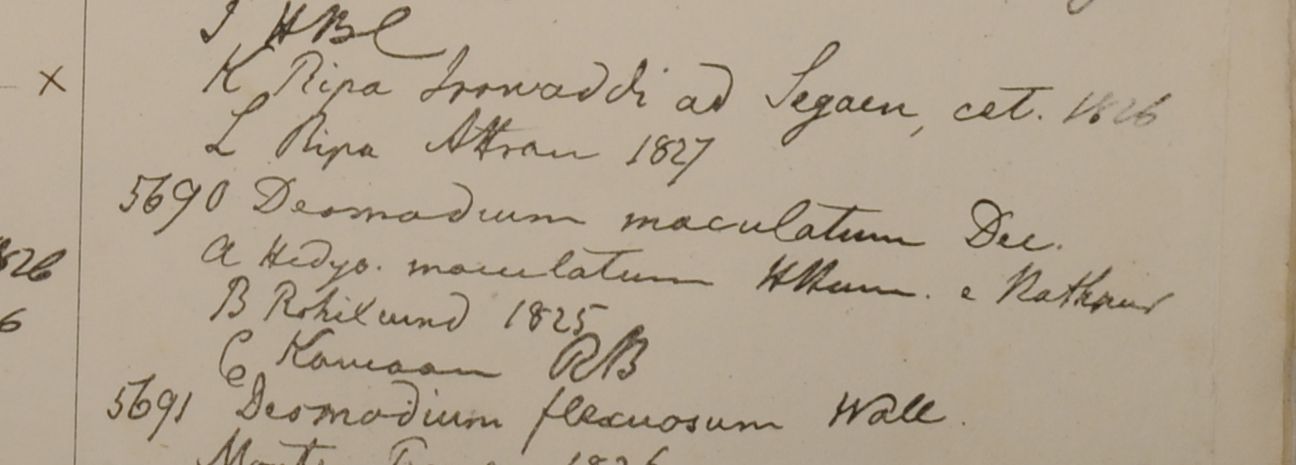 I HBC
K Ripa Irowaddi ad Segaen, cet. 1826
L Ripa Attran 1827
5690 Desmodium maculatum Dec.
a Hedys. maculatum HHam. e
B Rohilcund 1825
C Kamaon RB
5691 Desmodium flexuosum Wall.
1826
826
6